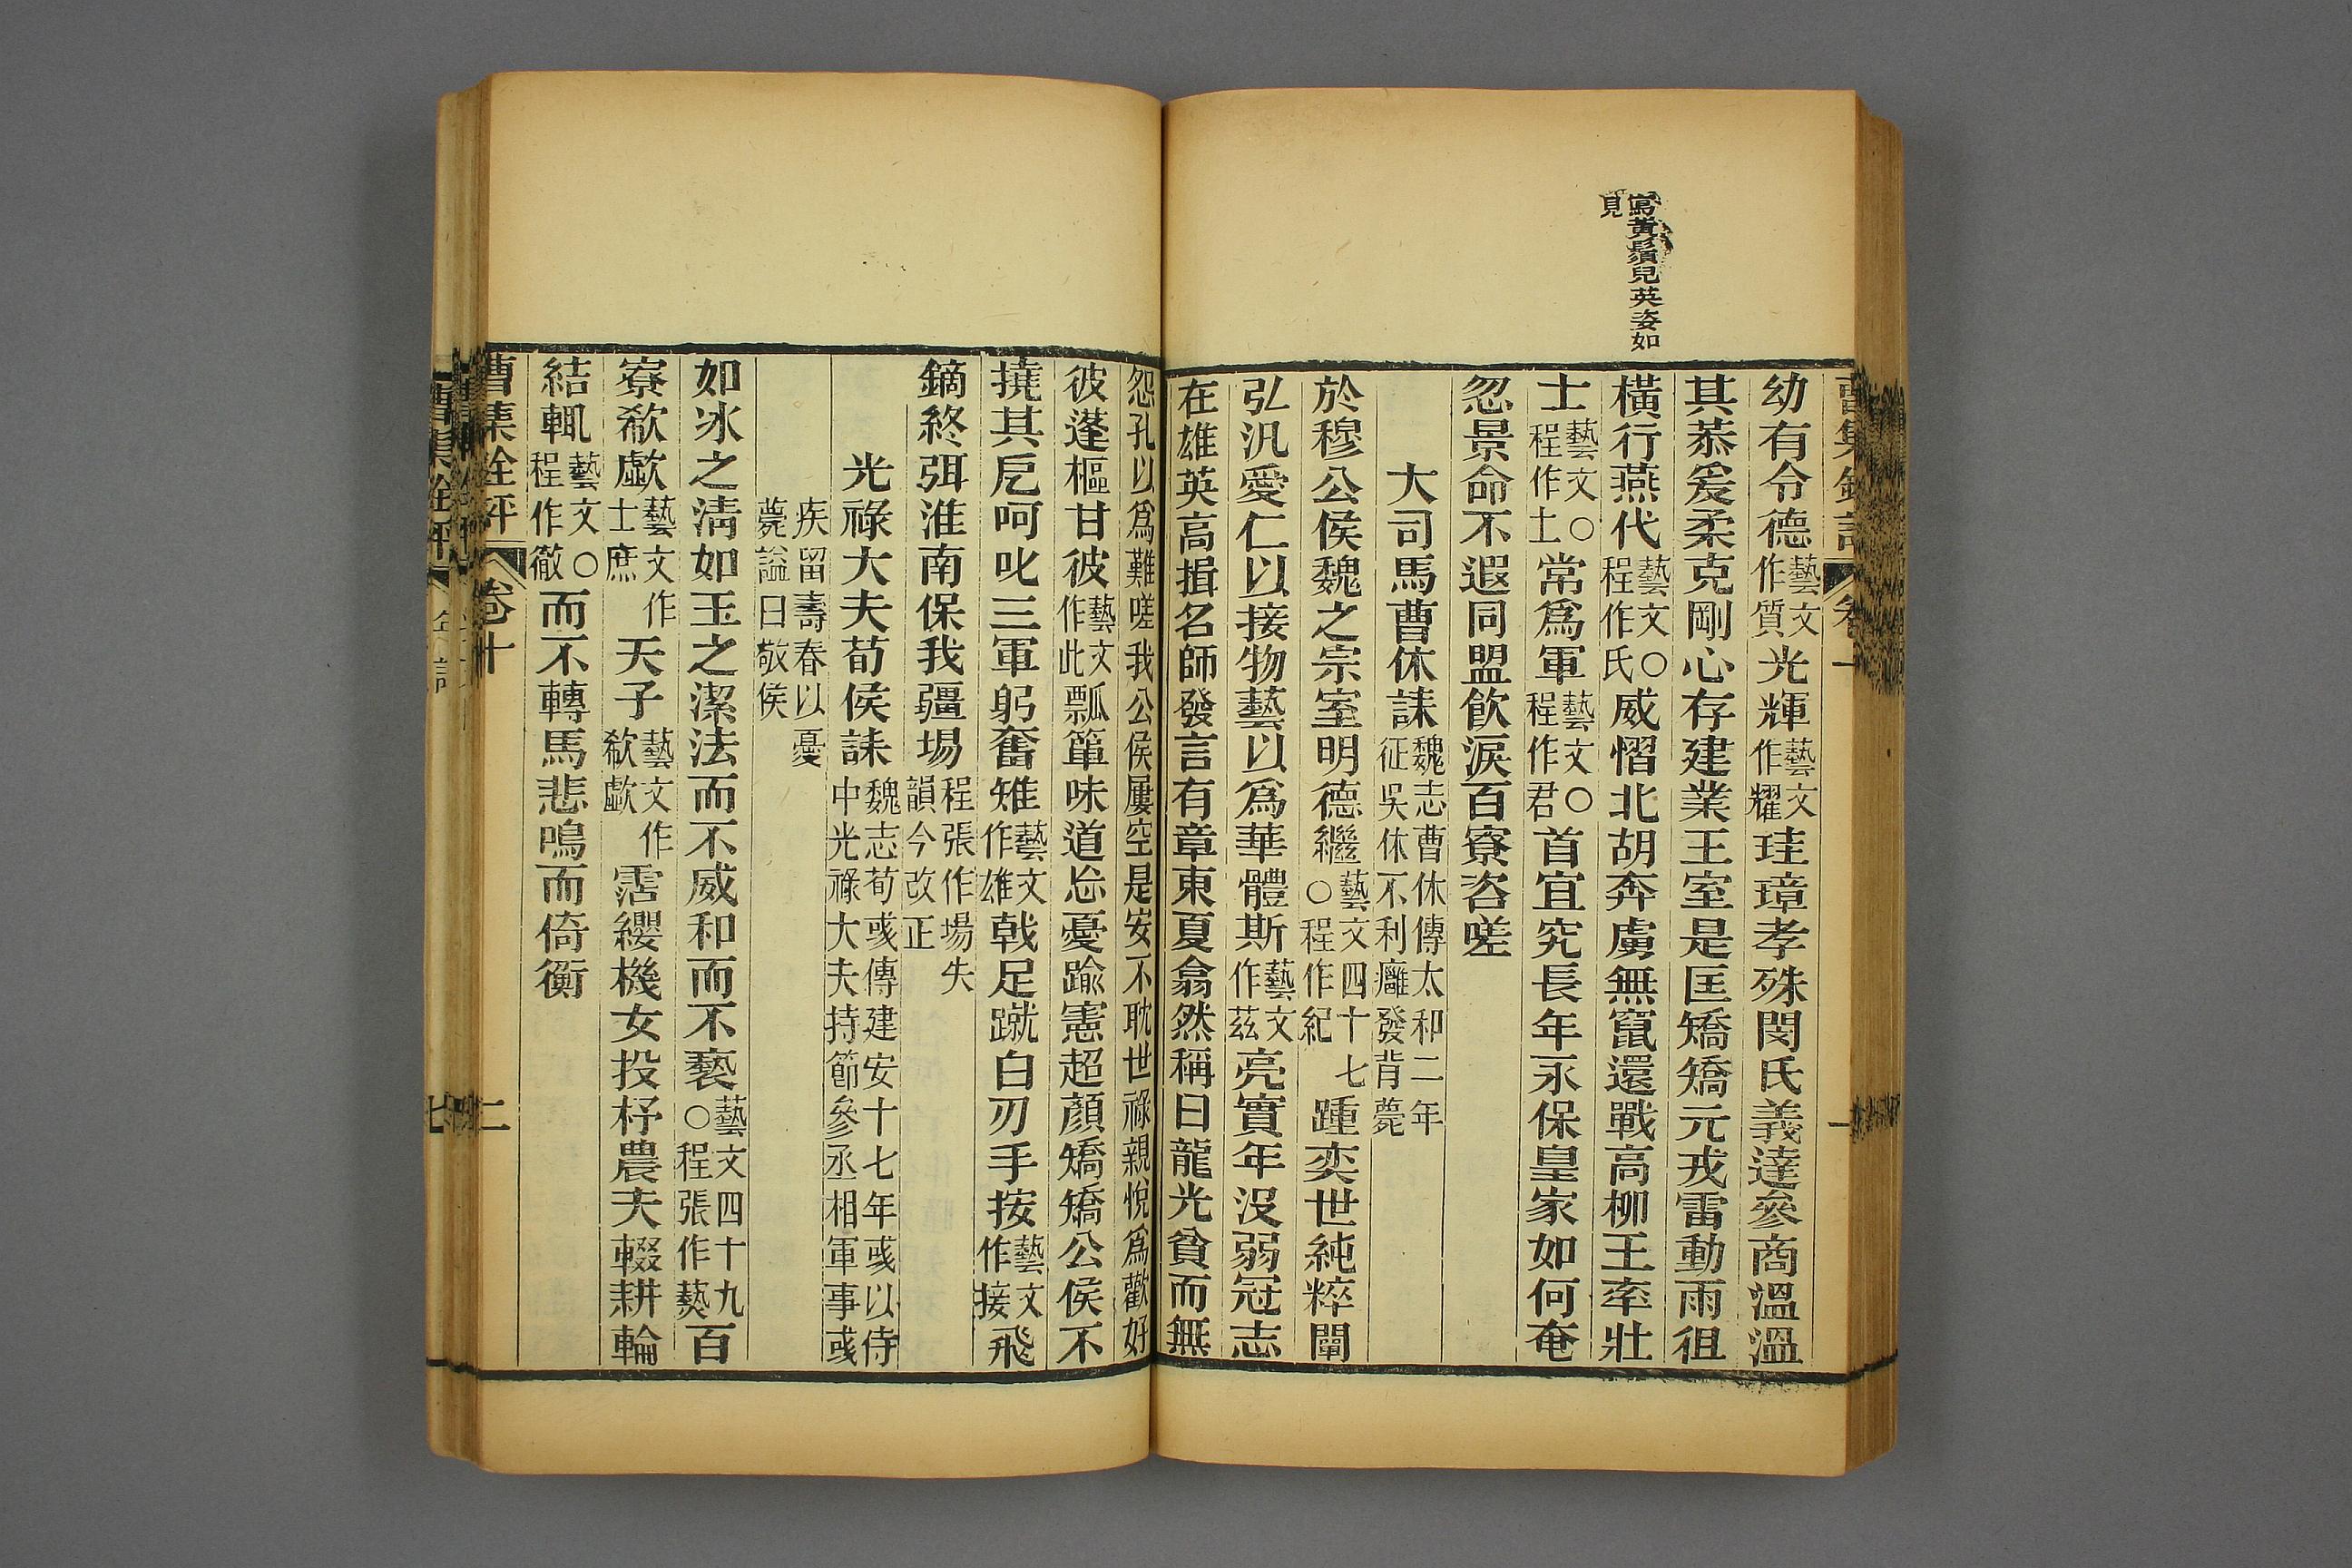 寫黃鬚兒英姿如
見
幼有令德藝文作質光輝藝文作耀珪璋孝殊閔氏義達參商溫溫
其恭爰柔克剛心存建業王室是匡矯矯元戎雷動雨徂
橫行燕代藝文○程作氏威慴北胡奔虜無竄還戰高柳王率壯
士藝文○程作土常爲軍藝文○程作君首宜究長年永保皇家如何奄
忽景命不遐同盟飲淚百寮咨嗟
大司馬曹休誄魏志曹休傳太和二年征吳休不利癰發背薨
於穆公侯魏之宗室明德繼藝文四十七○程作紀踵奕世純粹闡
弘汎愛仁以接物藝以爲華體斯藝文作茲亮實年沒弱冠志
在雄英高揖名師發言有章東夏翕然稱曰龍光貧而無
怨孔以爲難嗟我公侯屢空是安不耽世祿親悅爲歡好
彼蓬樞甘彼藝文作此瓢簞味道忘憂踰憲超顏矯矯公侯不
撓其戹呵叱三軍躬奮雉藝文作雄戟足蹴白刃手按藝文作接飛
鏑終弭淮南保我疆場程張作場失韻今改正
光祿大夫荀侯誄魏志荀彧傳建安十七年彧以侍中光祿大夫持節參丞相軍事彧
疾留壽春以憂薨謚曰敬侯
如冰之淸如玉之潔法而不威和而不褻藝文四十九○程張作藝百
寮欷歔藝文作士庶天子藝文作欷歔霑纓機女投杼農夫輟耕輪
結輒藝文○程作徹而不轉馬悲鳴而倚衡
曹集銓評 卷十 二